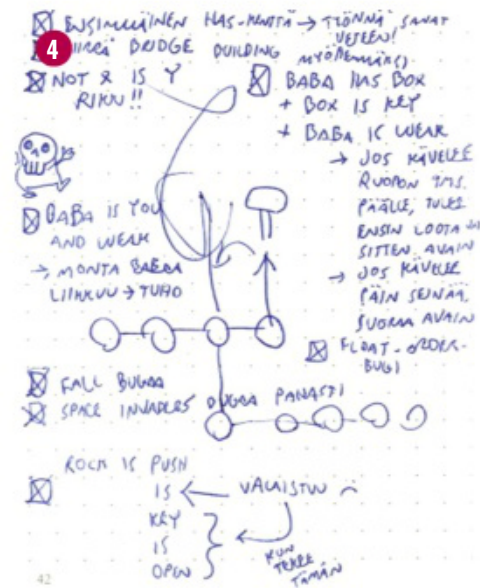 ENSIMMÄINEN HAS-KENTTÄ → TYÖNNÄ SANAT
VETEEN!
4
BRIDGE BUILDING
MYÖHEMMÄKSI
NOT X IS Y
RIKKI!!
BABA HAS BOX
+ BOX IS KEY
+ BABA IS WEAK
→ JOS KÄVELEE
RUOPON TMS.
PÄÄLLE, TULEE
ENSIN LOOTA JA
SITTEN AVAIN
→ JOS KÄVELEE
PÄIN SEINÄÄ,
SUORAA AVAIN
BABA IS YOU
AND WEAK
→ MONTA BABAA
LIIKKUU → TUHO
FLOAT-ORDER-
BUGI
FALL BUGAA
SPACE INVADERS BUGAA PAHASTI
ROCK IS PUSH
IS ← VALAISTUU
KEY
IS
OPEN
KUN
TEKEE
TÄMÄN
42